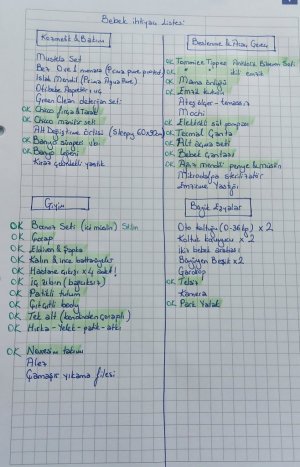 Bebek ihtiyaç listesi
Kozmetik & Bakım
Mustela Set
Bez 0 ve 1 numara (Prima pure protect)
Islak Mendil (Prima Aqua Pure)
Otibebe Aspiratör uç
Green Clean deterjan seti
OK Chicco fırça & Tarak
OK Chicco manikür seti
Alt Değiştirme Örtüsü (Sleepy 60x90)
OK Banyo süngeri
OK Banyo lifi
Kiraz çekirdekli yastık
Giyim
OK Battaniye Seti
OK Çorap
OK Eldiven & Şapka
OK Kalın & ince battaniyeler
OK Hastane çıkışı x 4 adet!
OK İç zıbın (bağcıksız)
OK Patikli tulum
OK Çıtçıtlı body
OK Tek alt (kendinden çoraplı)
OK Hırka - Yelek - patik - atkı
OK Nevresim takımı
Alez
Çamaşır yıkama filesi
Beslenme & Araç Gereç
OK Tommee Tippee Biberon Seti
OK " ikili emzik
OK Mama Önlüğü
OK Emzik kutusu
Ateş ölçer - temassız
OK Elektrikli süt pompası
OK Termal Çanta
OK Alt açma seti
OK Bebek Çantası
OK Ağız mendili penye & müslin
Mikrodalga sterilizatör
Emzirme Yastığı
Büyük Eşyalar
Oto koltuğu (0-36 kg) x 2
Koltuk koruyucu x 2
İkiz bebek arabası
Büyüyen Beşik x 2
Gardrop
OK Telsiz
Kamera
OK Park Yatak